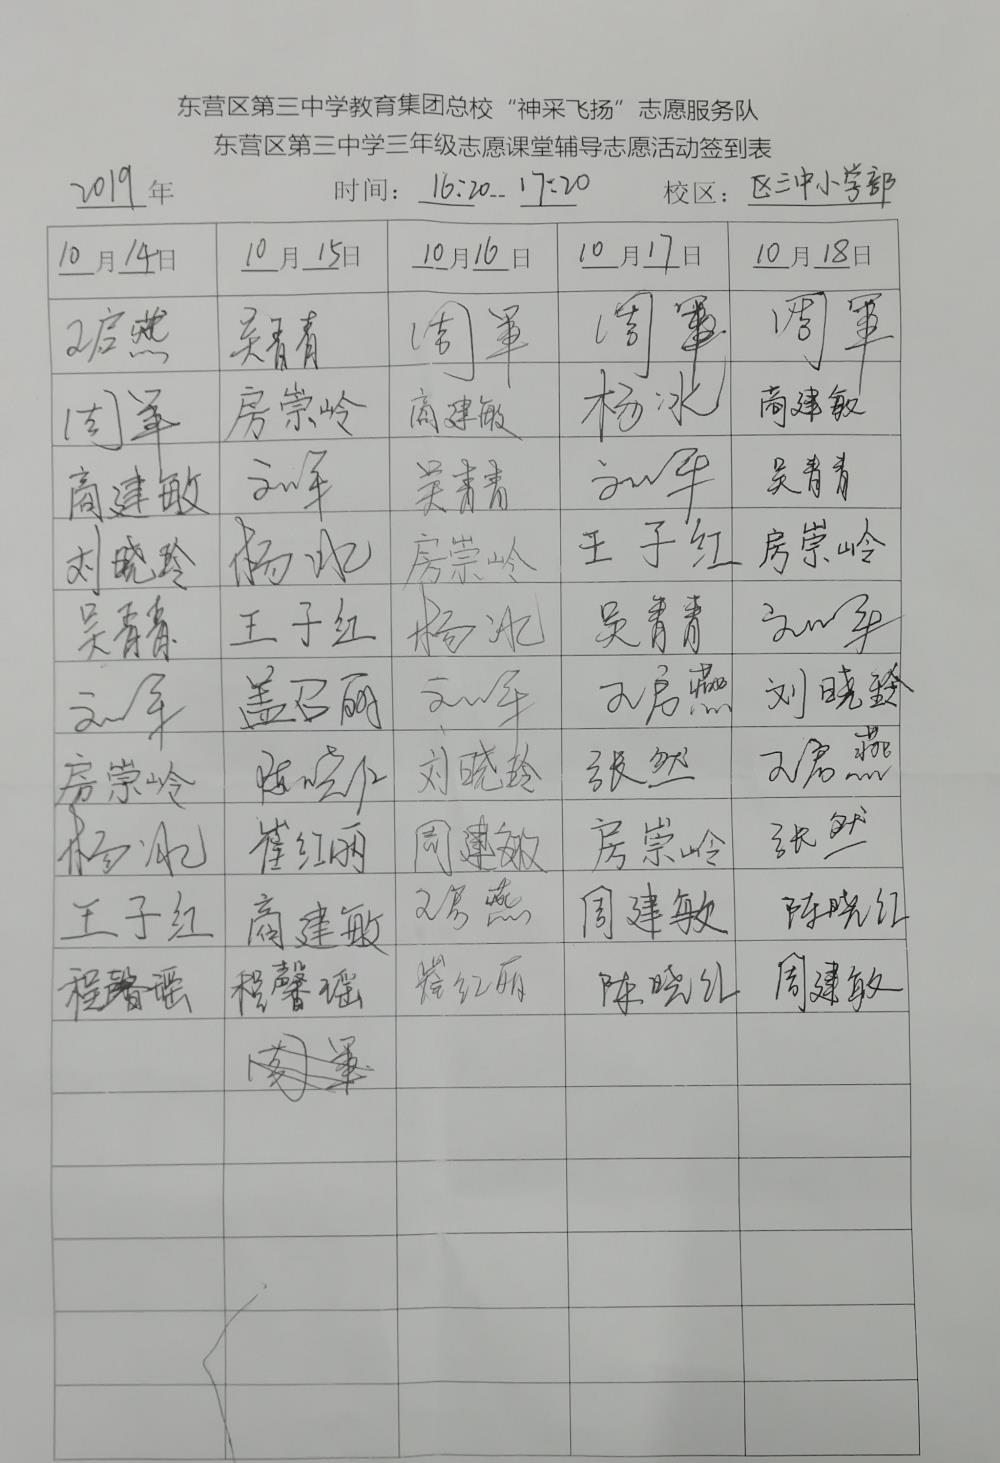 东营区第三中学教育集团总校“神采飞扬”志愿服务队
东营区第三中学三年级志愿课堂辅导志愿活动签到表
2019年 时间：16:20--17:20 校区：区三中小学部
10月14日 10月15日 10月16日 10月17日 10月18日
王君燕 吴青青 周军 周军 周军
周军 房崇岭 商建敏 杨冰 商建敏
商建敏 刘军 吴青青 刘军 吴青青
刘晓玲 杨冰 房崇岭 王子红 房崇岭
吴青青 王子红 杨冰 吴青青 刘军
刘军 盖召丽 刘军 王君燕 刘晓玲
房崇岭 陈晓红 刘晓玲 张然 王君燕
杨冰 崔红丽 周建敏 房崇岭 张然
王子红 商建敏 王君燕 周建敏 陈晓红
程馨瑶 程馨瑶 崔红丽 陈晓红 周建敏
周军